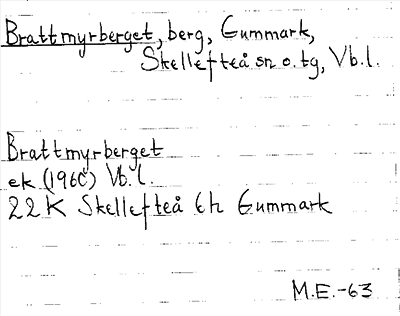 Brattmyrberget, berg, Gummark,
Skellefteå sn o. tg, Vb.l.
Brattmyrberget
ek (1960) Vb.l.
22K Skellefteå 6h Gummark
M.E.-63